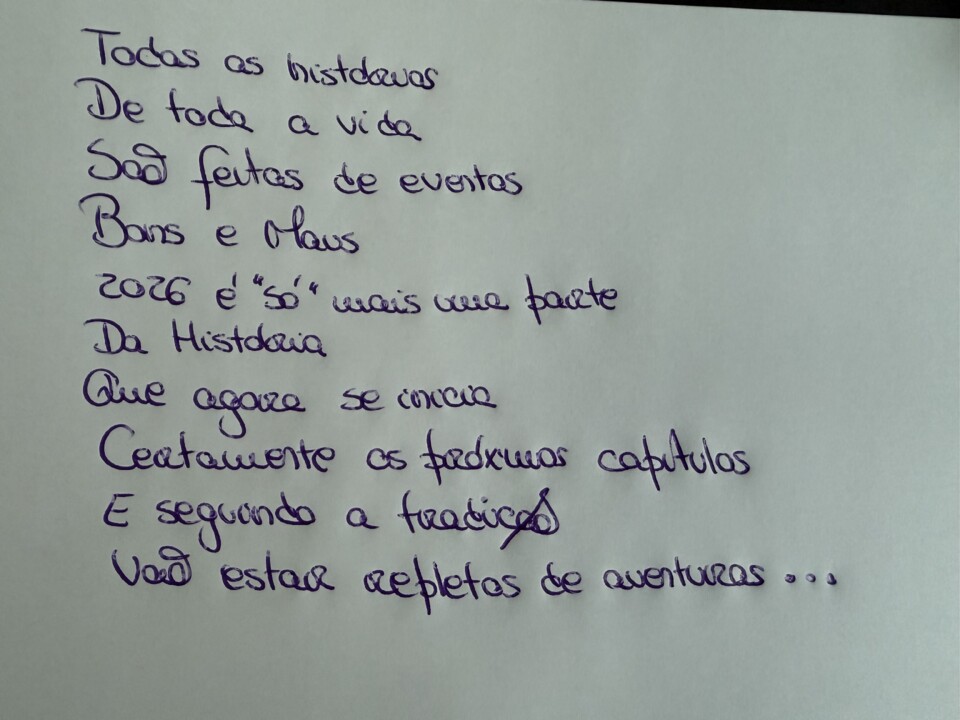 Todas as histórias
De toda a vida
São feitas de eventos
Bons e Maus
2026 é "só" mais uma parte
Da História
Que agora se inicia
Certamente os próximos capítulos
E segundo a tradição
Vão estar repletos de aventuras ...